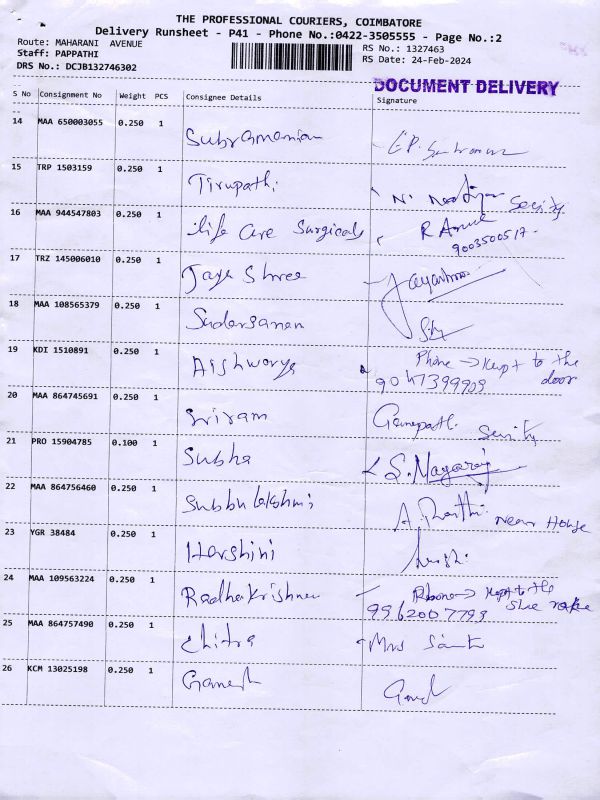 THE PROFESSIONAL COURIERS, COIMBATORE
Delivery Runsheet - P41 - Phone No.:0422-3505555 - Page No.:2
Route: MAHARANI AVENUE
RS No.: 1327463
Staff: PAPPATHI
RS Date: 24-Feb-2024
DRS No.: DCJB132746302
DOCUMENT DELIVERY
S No Consignment No Weight PCS Consignee Details Signature
14 MAA 650003055 0.250 1 Subramanian
15 TRP 1503159 0.250 1 Tirupathi
16 MAA 944547803 0.250 1 life Care Surgicals
9003500517
17 TRZ 145006010 0.250 1 Jaya Shree
18 MAA 108565379 0.250 1 Sudarsanan
19 KDI 1510891 0.250 1 Aishwarya Phone → kept to the
door
20 MAA 864745691 0.250 1 Sriram
21 PRO 15904785 0.100 1 Subha S. Nagaraj
22 MAA 864756460 0.250 1 Subbulakshmi Near House
23 YGR 38484 0.250 1 Harshini
24 MAA 109563224 0.250 1 Radhakrishnan Phone → kept to the
9962007799
25 MAA 864757490 0.250 1 Chitra Mrs
26 KCM 13025198 0.250 1 Ganesh